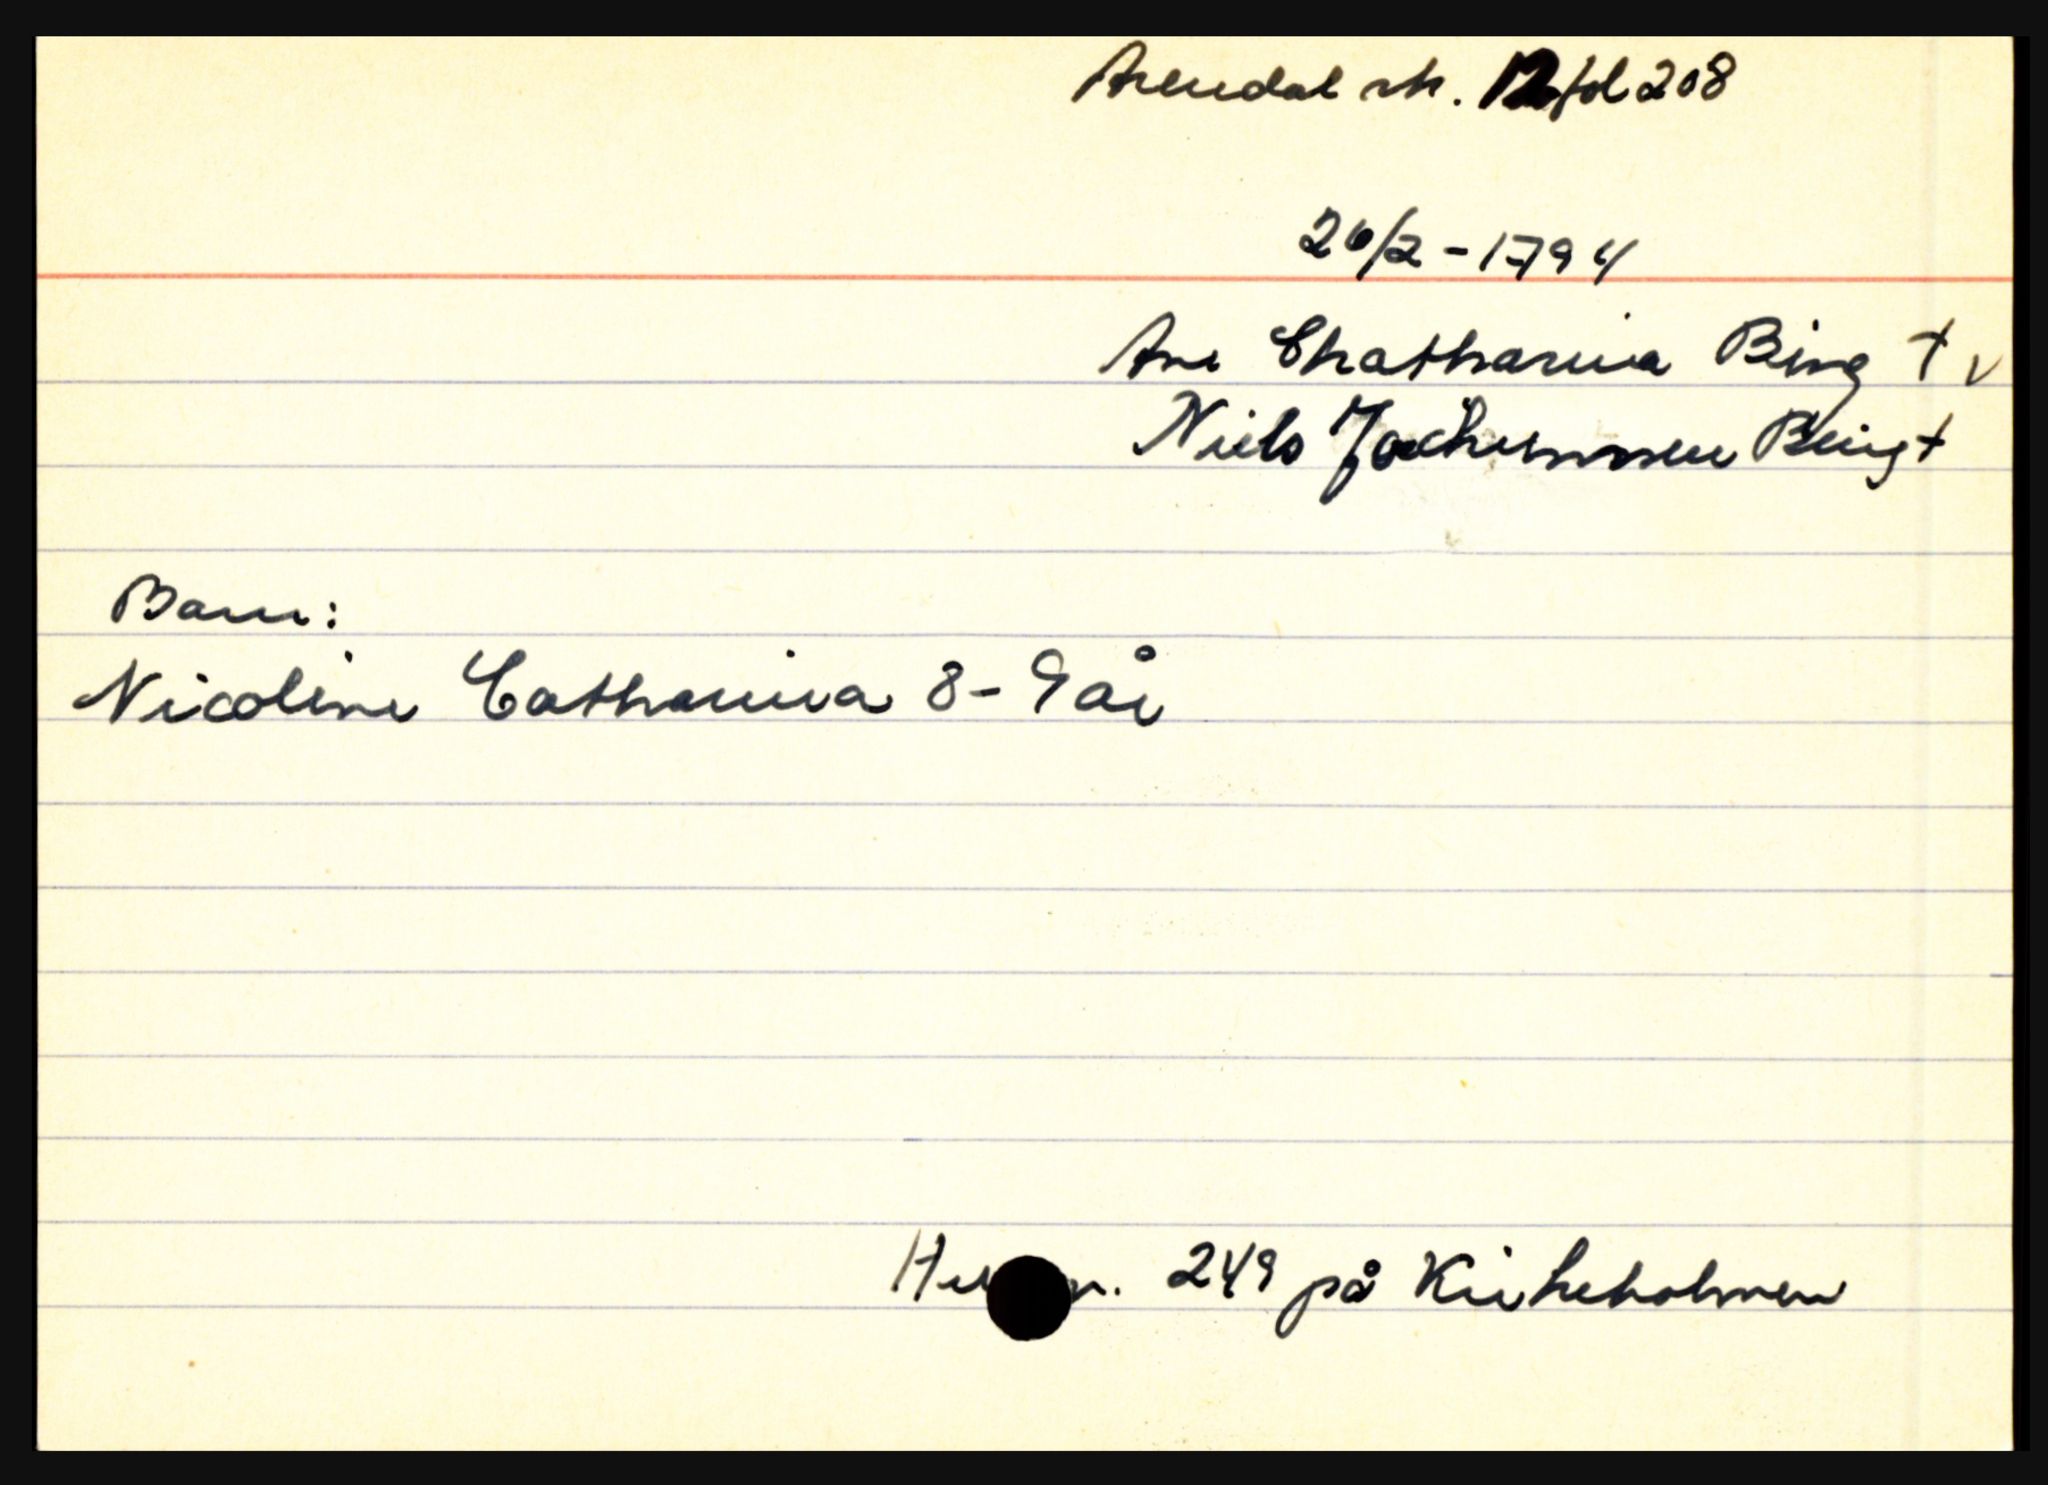 Arendal sk. 12 fol 208
26/2 - 1794
Ane Chatharina Bing † v
Niels Jochumsen Bing †
Barn:
Nicoline Catharina 8-9 år
249 på Kirkeholmen